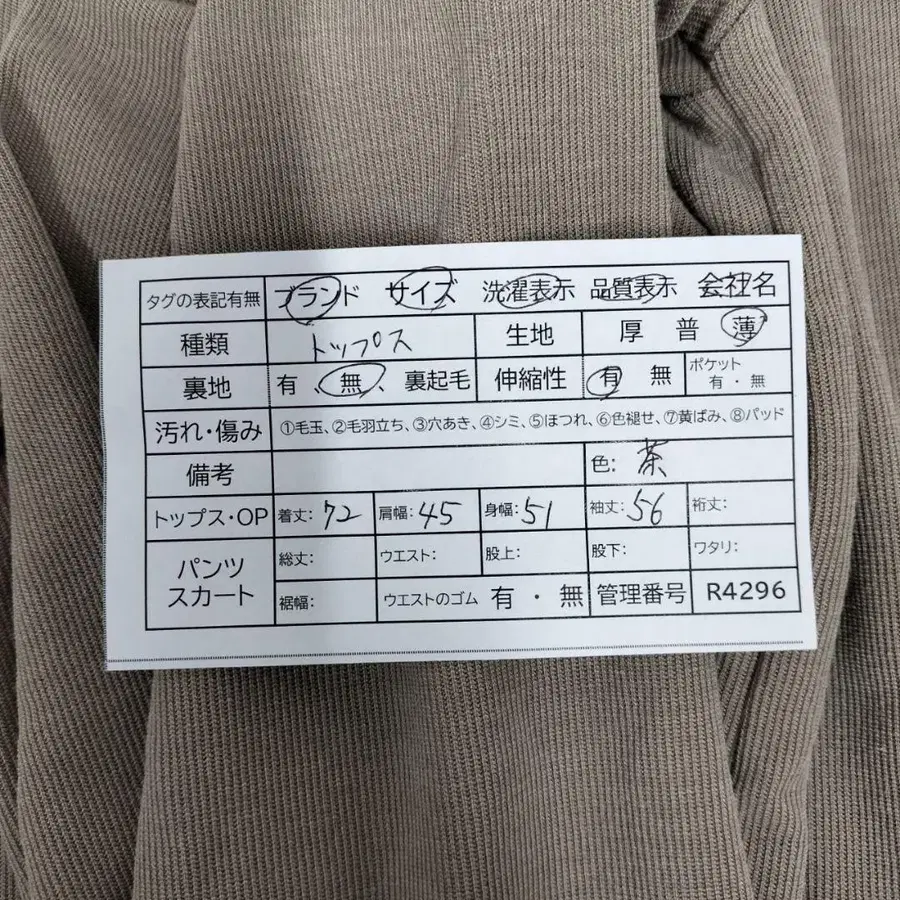 タグの表記有無 ブランド サイズ 洗濯表示 品質表示 会社名
種類 トップス 生地 厚 普 薄
裏地 有、無、裏起毛 伸縮性 有 無 ポケット 有・無
汚れ・傷み ①毛玉、②毛羽立ち、③穴あき、④シミ、⑤ほつれ、⑥色褪せ、⑦黄ばみ、⑧パッド
備考 色: 茶
トップス・OP 着丈: 72 肩幅: 45 身幅: 51 袖丈: 56 裄丈:
パンツ スカート 総丈: ウエスト: 股上: 股下: ワタリ:
裾幅: ウエストのゴム 有・無 管理番号 R4296